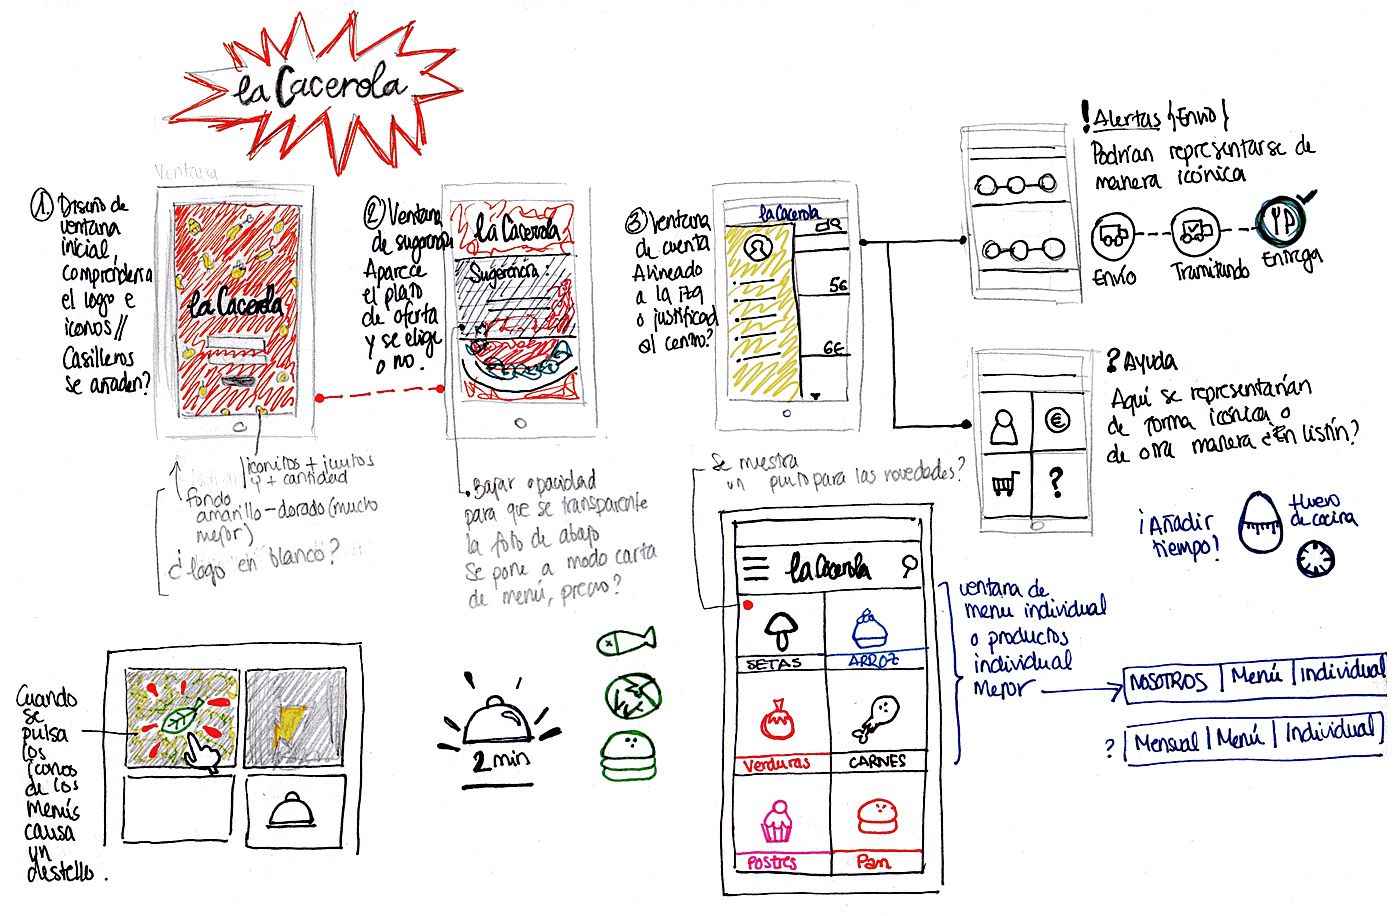 la Cacerola
Ventana
① Diseño de
ventana
inicial,
comprendera
el logo e
iconos//
Casilleros
se añaden?
la Cacerola
iconitos + juntos
y + cantidad
fondo
amarillo-dorado (mucho
mejor)
¿logo en blanco?
② Ventana
de sugerencia
Aparece
el plato
de oferta
y se elige
o no.
la Cacerola
Sugerencia:
Bajar opacidad
para que se transparente
la foto de abajo
Se pone a modo carta
de menú, precio?
③ Ventana
de cuenta
Alineado
a la izq
o justificad
al centro?
la Cacerola
5€
6€
! Alertas {Envío}
Podrían representarse de
manera icónica
Envío
Tramitando
Entrega
? Ayuda
Aquí se representarían
de forma icónica o
de otra manera ¿En listín?
€
?
¡Añadir
tiempo!
Huevo
de cocina
Se muestra
un punto para las novedades?
la Cacerola
SETAS
ARROZ
Verduras
CARNES
Postres
Pan
ventana de
menu individual
o productos
individual
Mejor
NOSOTROS | Menú | Individual
? Mensual | Menú | Individual
Cuando
se
pulsa
los
iconos
de los
menús
causa
un
destello.
2 min